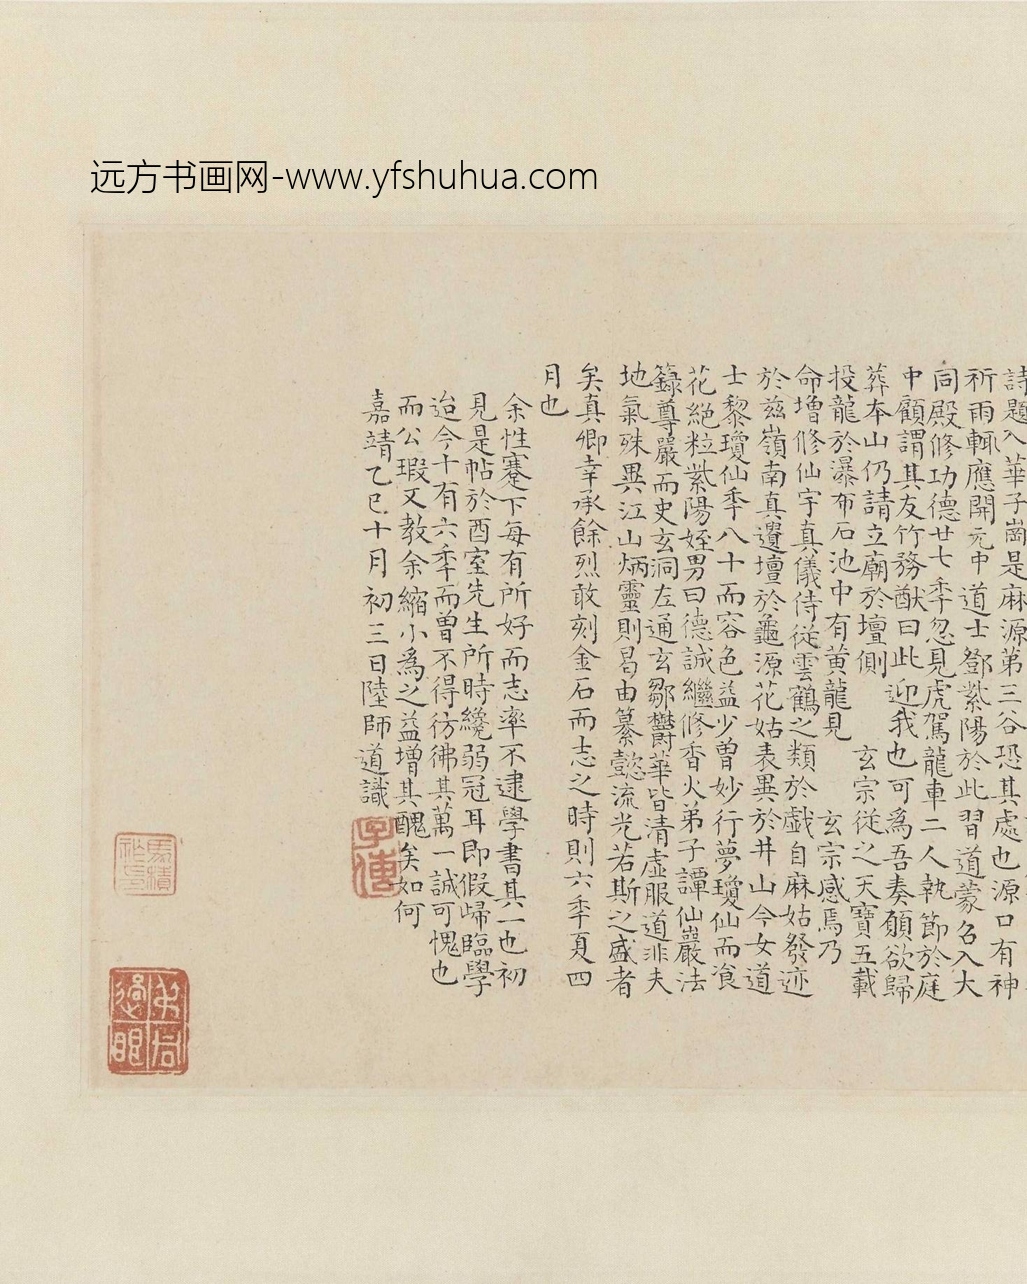 远方书画网-www.yfshuhua.com
詩題入華子崗是麻源第三谷恐其處也源口有神
祈雨輒應開元中道士鄧紫陽於此習道蒙召入大
同殿修功德廿七季忽見虎駕龍車二人執節於庭
中顧謂其友竹務猷曰此迎我也可為吾奏願欲歸
葬本山仍請立廟於壇側 玄宗從之天寶五載
投龍於瀑布石池中有黃龍見 玄宗感焉乃
命增修仙宇真儀侍從雲鶴之類於戲自麻姑發迹
於兹嶺南真遺壇於龜源花姑表異於井山今女道
士黎瓊仙季八十而容色益少曾妙行夢瓊仙而飡
花絕粒紫陽姪男曰德誠繼修香火弟子譚仙巖法
籙尊嚴而史玄洞左通玄鄒欝華皆清虛服道非夫
地氣殊異江山炳靈則曷由纂懿流光若斯之盛者
矣真卿幸承餘烈敢刻金石而志之時則六季夏四
月也
余性蹇下每有所好而志率不逮學書其一也初
見是帖於酉室先生所時纔弱冠耳即假歸臨學
迨今十有六季而曾不得彷彿其萬一誠可愧也
而公瑕又教余縮小為之益增其醜矣如何
嘉靖乙巳十月初三日陸師道識
子傳